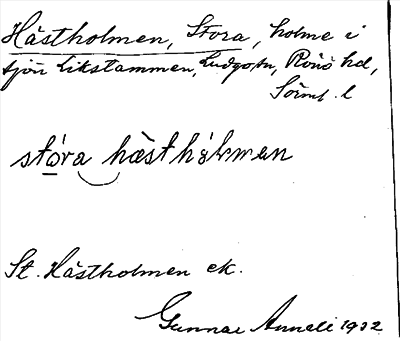 Hästholmen, Stora, holme i
sjön Likstammen, Ludgo sn, Rönö hd,
Sörml. l
stóra hästhólmen
St. Hästholmen ek.
Gunnar Anneli 1932